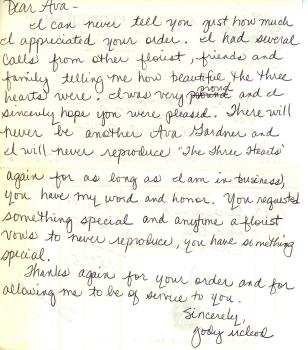 Dear Ava -
I can never tell you just how much
I appreciated your order. I had several
calls from other floist, friends and
family telling me how beautiful the three
hearts were. I was very proud and I
sincerly hope you were pleased. There will
never be another Ava Gardner and
I will never reproduce "The Three Hearts"
again for as long as I am in business,
you have my word and honor. You requested
something special and anytime a floist
vows to never reproduce, you have something
special.
Thanks again for your order and for
allowing me to be of service to you.
Sincerely,
Joby McLeod